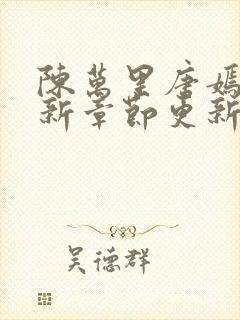 陳萬里唐嫣
新章節更新
吳德群